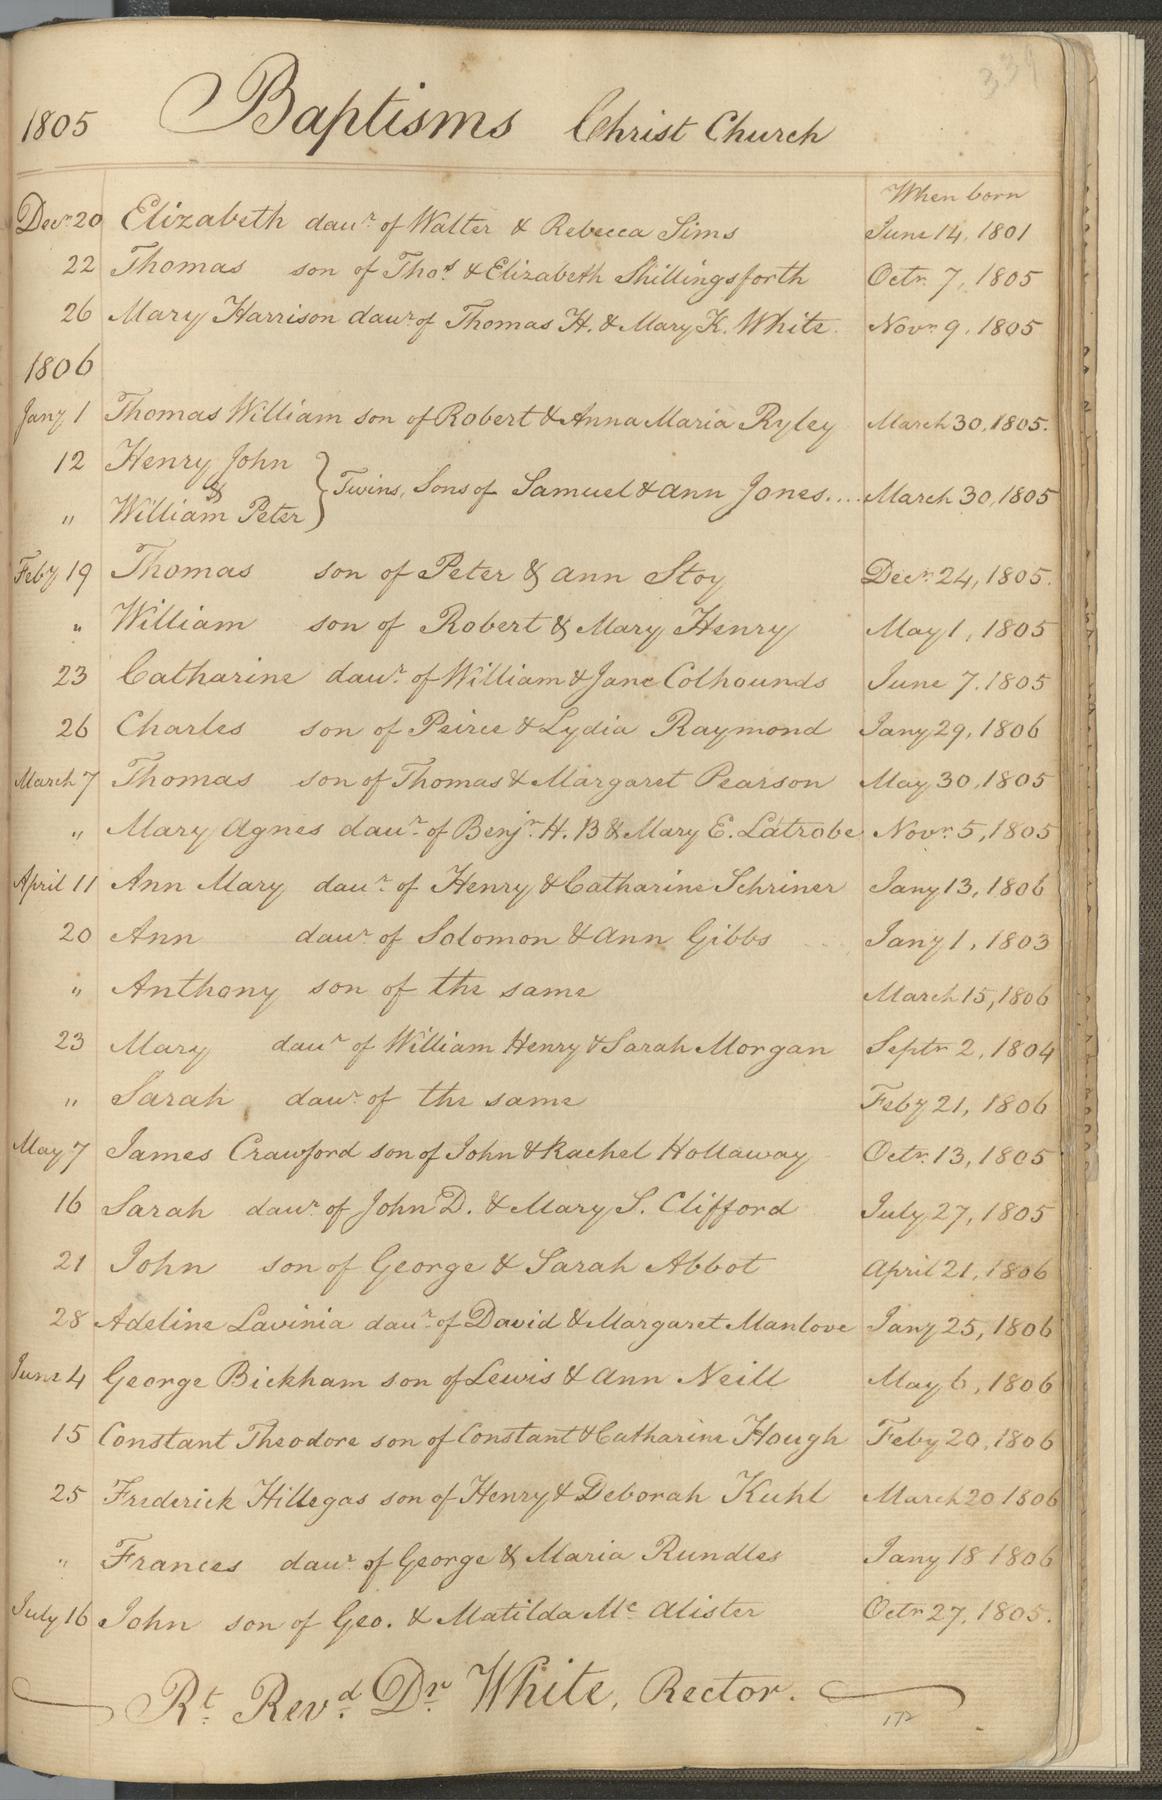 339
1805 Baptisms Christ Church
When born
Decr. 20 Elizabeth daur. of Walter & Rebecca Sims June 14, 1801
22 Thomas son of Thos. & Elizabeth Shillingsforth Octr. 7, 1805
26 Mary Harrison daur. of Thomas H. & Mary K. White. Novr. 9, 1805
1806
Jany 1 Thomas William son of Robert & Anna Maria Ryley March 30, 1805.
12 Henry John
& } Twins, Sons of Samuel & Ann Jones.... March 30, 1805
" William Peter
Feby 19 Thomas son of Peter & Ann Stoy Decr. 24, 1805.
" William son of Robert & Mary Henry May 1, 1805
23 Catharine daur. of William & Jane Colhounds June 7. 1805
26 Charles son of Peirce & Lydia Raymond Jany 29, 1806
March 7 Thomas son of Thomas & Margaret Pearson May 30, 1805
" Mary Agnes daur. of Benjn. H. B & Mary E. Latrobe Novr. 5, 1805
April 11 Ann Mary daur. of Henry & Catharine Schriner Jany 13, 1806
20 Ann daur. of Solomon & Ann Gibbs Jany 1, 1803
" Anthony son of the same March 15, 1806
23 Mary daur. of William Henry & Sarah Morgan Septr. 2, 1804
" Sarah daur. of the same Feby 21, 1806
May 7 James Crawford son of John & Rachel Hollaway Octr. 13, 1805
16 Sarah daur. of John D. & Mary S. Clifford July 27, 1805
21 John son of George & Sarah Abbot April 21, 1806
28 Adeline Lavinia daur. of David & Margaret Manlove Jany 25, 1806
June 4 George Bickham son of Lewis & Ann Neill May 6, 1806
15 Constant Theodore son of Constant & Catharine Hough Feby 20, 1806
25 Frederick Hillegas son of Henry & Deborah Kuhl March 20 1806
" Frances daur. of George & Maria Rundles Jany 18 1806
July 16 John son of Geo. & Matilda Mc Alister Octr. 27, 1805.
Rt. Revd. Dr. White, Rector.